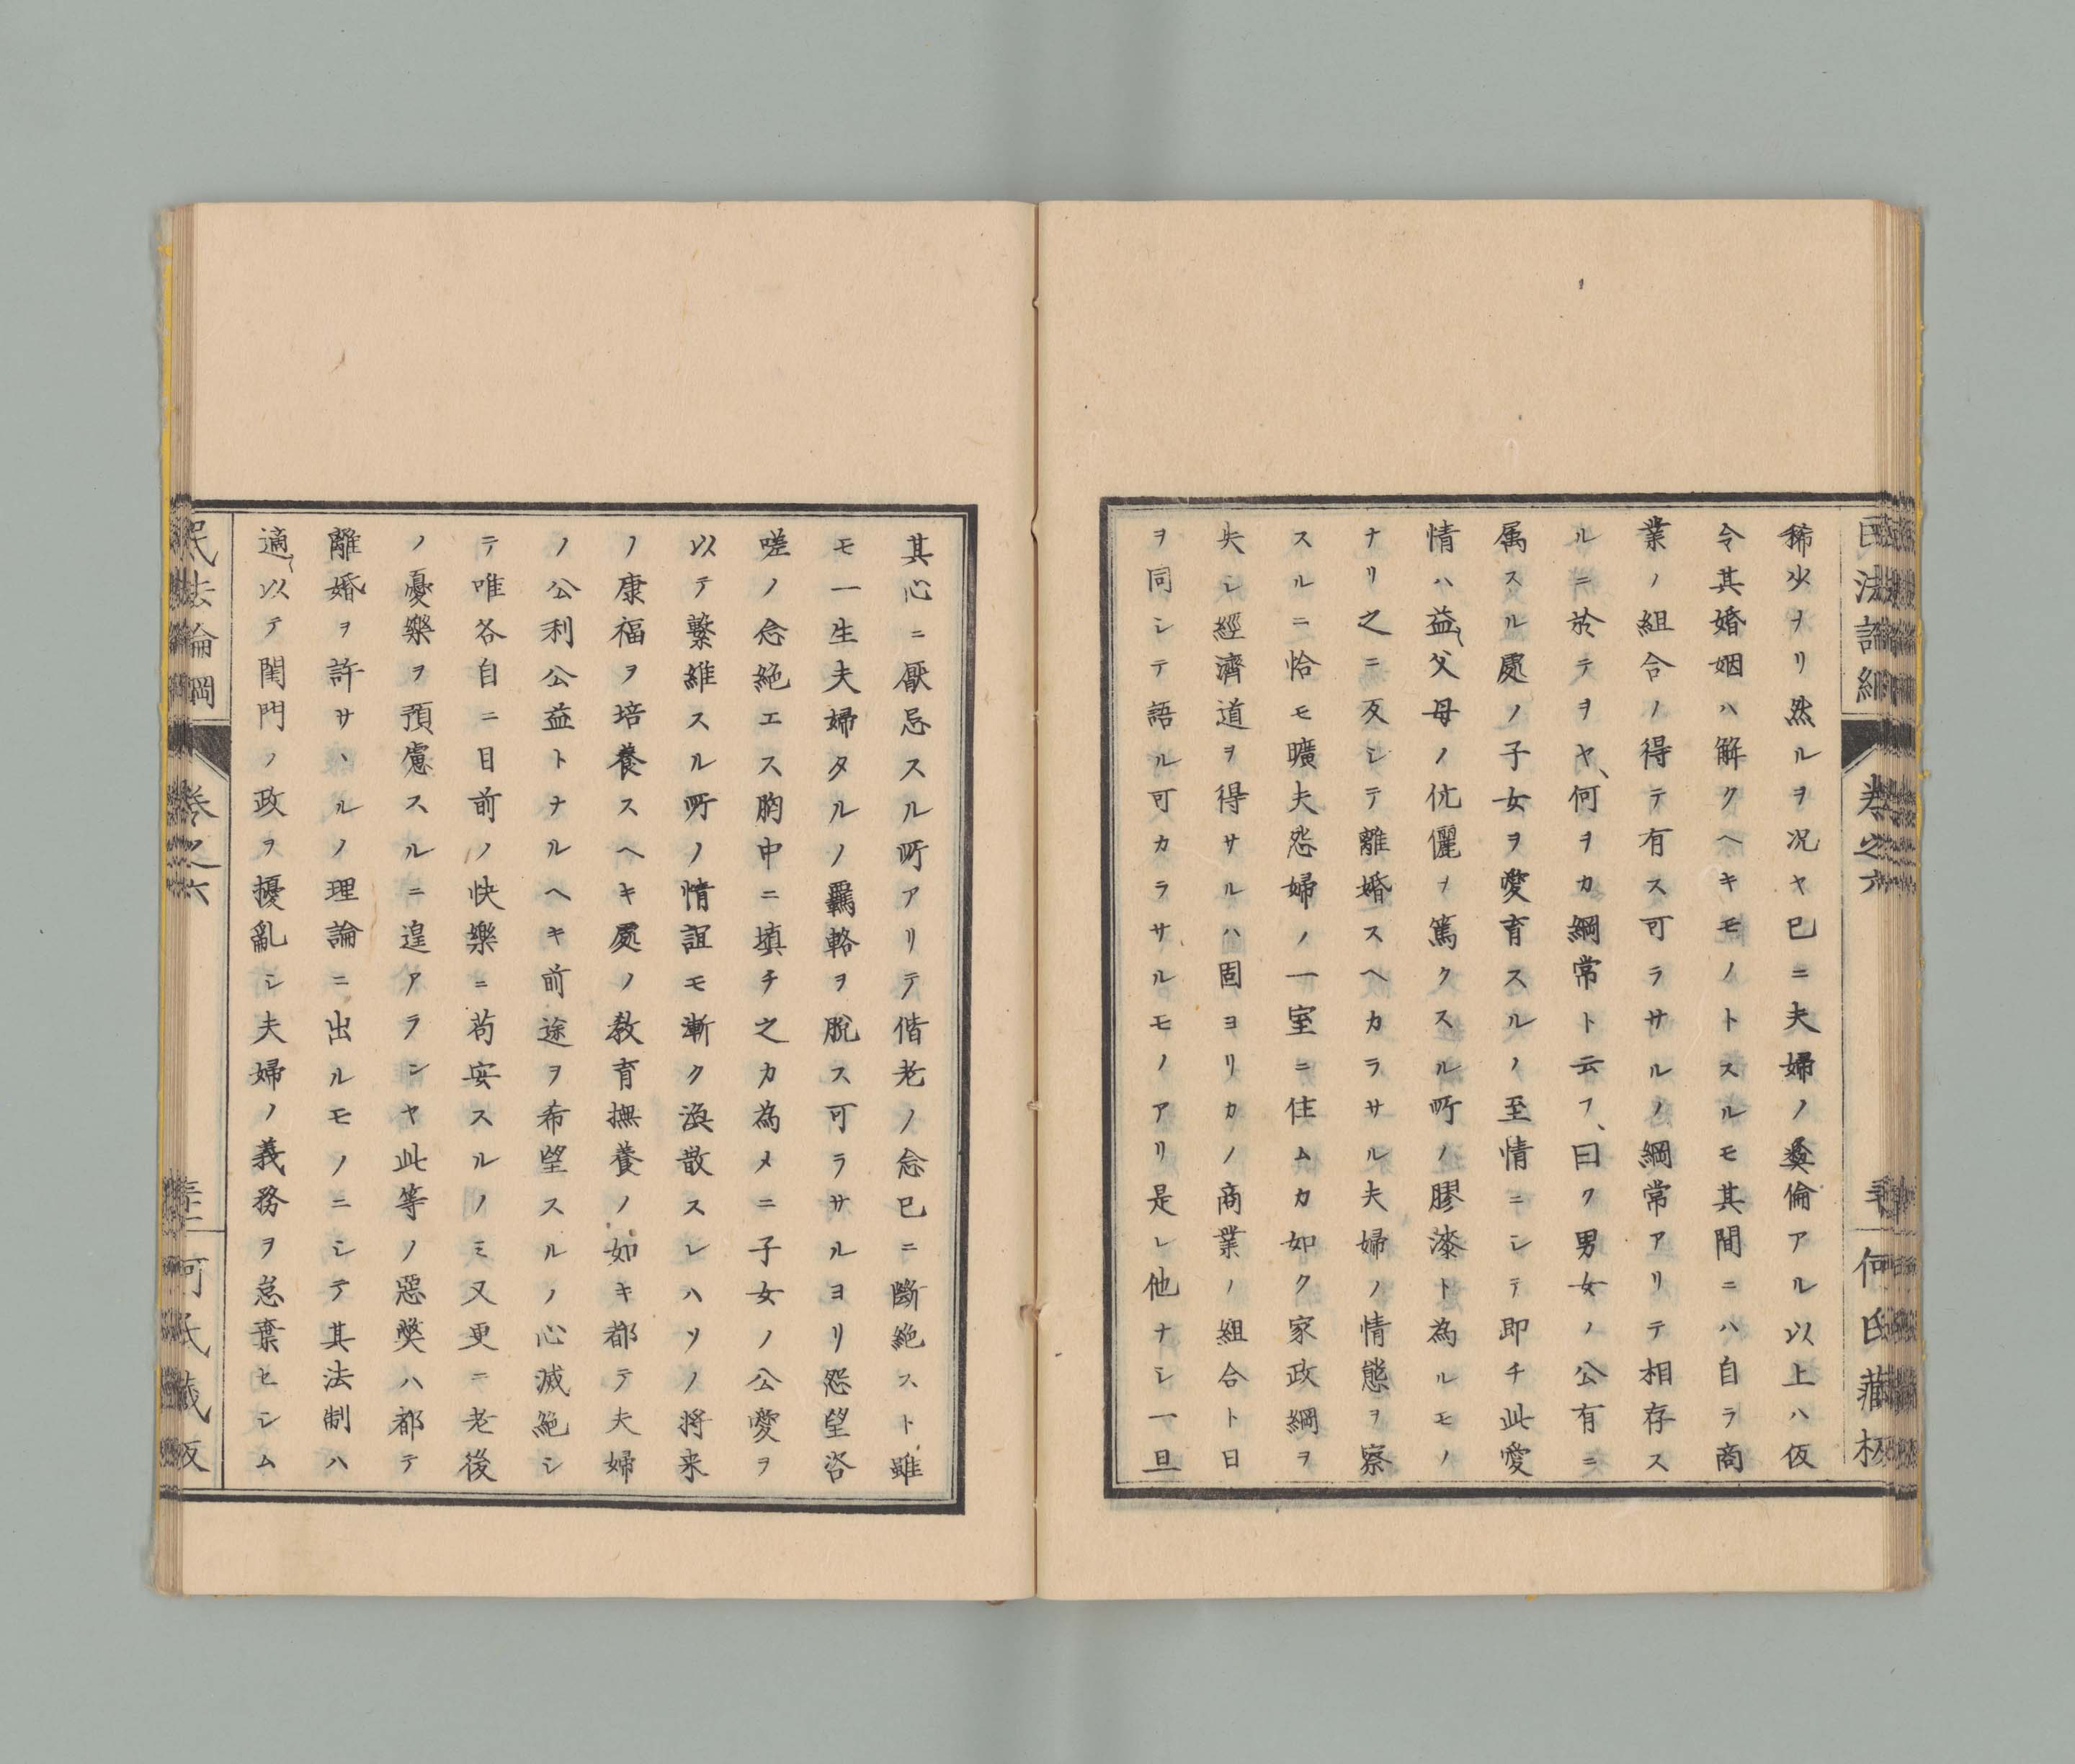 稀少ナリ然ルヲ况ヤ已ニ夫婦ノ彜倫アル以上ハ仮
令其婚姻ハ解クヘキモノトスルモ其間ニハ自ラ商
業ノ組合ノ得テ有ス可ラサルノ綱常アリテ相存ス
ルニ於テヲヤ、何ヲカ綱常ト云フ、曰ク男女ノ公有ニ
属スル處ノ子女ヲ愛育スルノ至情ニシテ即チ此愛
情ハ益〻父母ノ伉儷ヲ篤クスル所ノ膠漆ト為ルモノ
ナリ之ニ反シテ離婚スヘカラサル夫婦ノ情態ヲ察
スルニ恰モ曠夫怨婦ノ一室ニ住ムカ如ク家政綱ヲ
失シ經濟道ヲ得サルハ固ヨリカノ商業ノ組合ト日
ヲ同シテ語ル可カラサルモノアリ是レ他ナシ一旦
民法論綱
卷之六
何氏藏板
其心ニ厭忌スル所アリテ偕老ノ念已ニ斷絶スト雖
モ一生夫婦タルノ羈輅ヲ脫ス可ラサルヨリ怨望咨
嗟ノ念絶エス胸中ニ填チ之カ為メニ子女ノ公愛ヲ
以テ繫維スル所ノ情誼モ漸ク渙散スレハソノ将来
ノ康福ヲ培養スヘキ處ノ教育撫養ノ如キ都テ夫婦
ノ公利公益トナルヘキ前途ヲ希望スルノ心滅絶シ
テ唯各自ニ目前ノ快樂ニ苟安スルノミ又更ニ老後
ノ憂樂ヲ預慮スルニ遑アランヤ此等ノ惡獘ハ都テ
離婚ヲ許サヽルノ理論ニ出ルモノニシテ其法制ハ
適〻以テ閨門ノ政ヲ擾亂シ夫婦ノ義務ヲ怠棄セシム
民法論綱
卷之六
何氏藏板